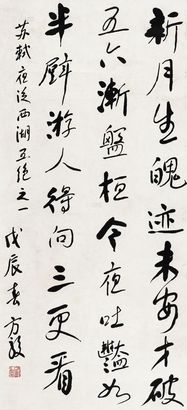 新月生魄迹未安才破
五六渐盘桓今夜吐艳如
半璧游人得向三更看
苏轼夜泛西湖五绝之一
戊辰春方毅